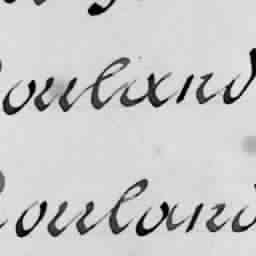 Rouland
Rouland